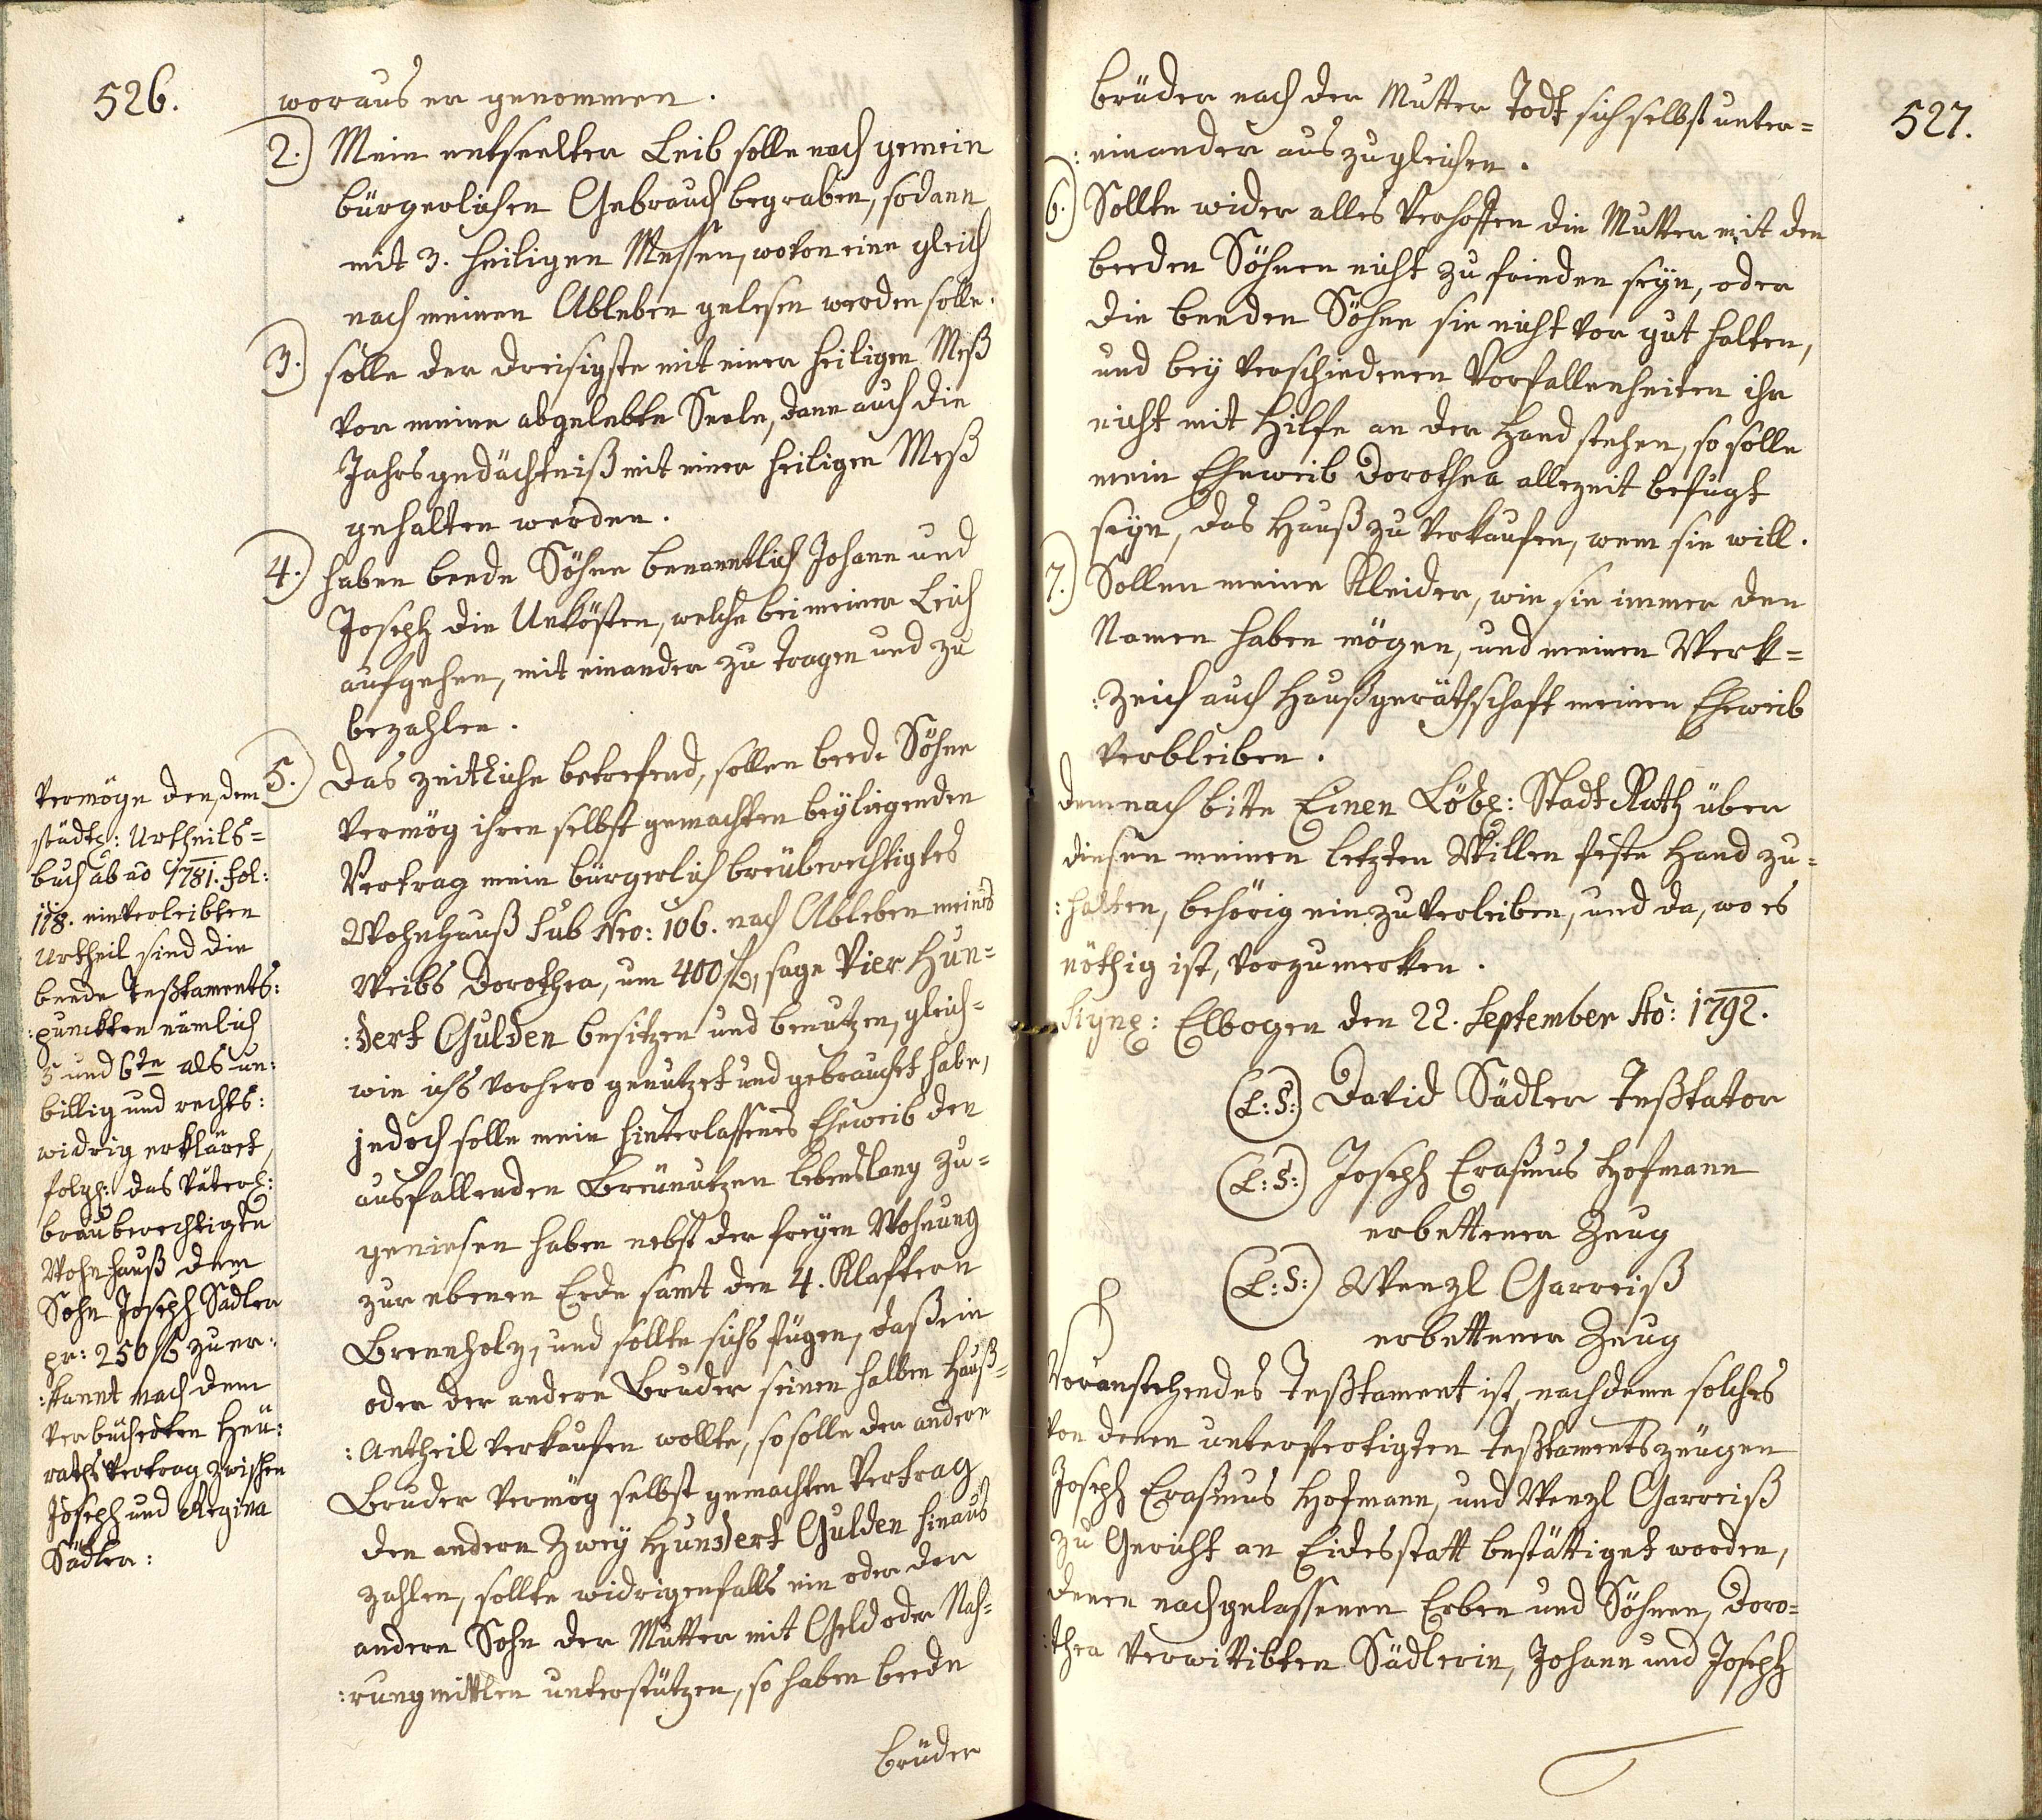 526.
woraus er genommen.
2.) Mein entseelter Leib solle nach gemein
bürgerlichen Gebrauch begraben, sodann
mit 3. heiligen Messen, wovon eine gleich
nach meinen Ableben gelesen werden solle.
3.) solle der dreisigste mit einer heiligen Meß
vor meine abgelebte Seele, dann auch die
Jahrsgedächtniß mit einer heiligen Meß
gehalten werden.
4.) haben beede Söhne benanntlich Johann und
Joseph die Unkösten, welche bei meiner Leich
aufgehen, mit einander zu tragen und zu
bezahlen.
5.) Das zeitliche betrefend, sollen beede Söhne
Vermög ihren selbst gemachten beyliegenden
Vertrag mein bürgerlich breuberechtigtes
Wohnhauß sub Nro: 106. nach Ableben meines
Weibs Dorothea, um 400 f, sage Vier Hun=
:dert Gulden besitzen und benutzen, gleich=
wie ichs vorhero genutzet und gebrauchet habe,
jedoch solle mein hinterlassenes Eheweib den
ausfallenden Breunutzen lebenslang zu=
geniesen haben nebst der freyen Wohnung
zur ebenen Erde samt den 4. Klaftern
Brennholz, und sollte sichs fügen, daß ein
oder der andere Bruder seinen halben Hauß=
:Antheil verkaufen wollte, so solle der andere
Bruder vermög selbst gemachten Vertrag
den andern Zwey Hundert Gulden hinaus
zahlen, sollte widrigenfalls ein oder der
andere Sohn der Mutter mit Geld oder Nah=
:rungmittlen unterstützen, so haben beede
brüder
Vermöge den, dem
städtl: Urtheils=
buch ab ao 1781. fol:
118. einverleibten
Urtheil sind die
beede Testaments:
:puncten nämlich
5 und 6te als un:
billig und rechts:
widrig erkläret,
folgl: das väterl:
brauberechtigte
Wohnhauß dem
Sohn Joseph Sädler
pr: 250 f zuer:
:kannt nach dem
verbücherten Heü:
raths Vertrag zwischen
Joseph und Regina
Sädler:
527.
brüder nach der Mutter Todt sich selbst unter=
:einander auszugleichen.
6.) Sollte wider alles Verhoffen die Mutter mit den
beeden Söhnen nicht zu frieden seyn, oder
die beeden Söhne sie nicht vor gut halten,
und bey verschiedenen Vorfallenheiten ihr
nicht mit Hilfe an der Hand stehen, so solle
mein Eheweib Dorothea allezeit befugt
seyn, das Hauß zu verkaufen, wem sie will.
7.) Sollen meine Kleider, wie sie immer den
Namen haben mögen, und meinen Werk=
:zeich auch Haußgeräthschaft meinen Eheweib
verbleiben.
demnach bitte Einen Löbl: Stadt Rath über
diesen meinen letzten Willen feste Hand zu=
:halten, behörig einzuverleiben, und da, wo es
nöthig ist, vorzumerken.
Signl: Elbogen den 22. September Ao: 1792.
(L:S:) David Sädler Testtator
(L:S:) Joseph Erasmus Hofmann
erbettener Zeug
(L:S:) Wenzl Garreiß
erbettener Zeug
Voranstehendes Testtament ist, nachdeme solches
von denen unterfertigten Testtamentszeügen
Joseph Erasmus Hofmann, und Wenzl Garreiß
zu Gericht an Eidesstatt bestättiget worden,
denen nachgelassenen Erben und Söhnen, Doro=
:thea verwittibten Sädlerin, Johann und Joseph